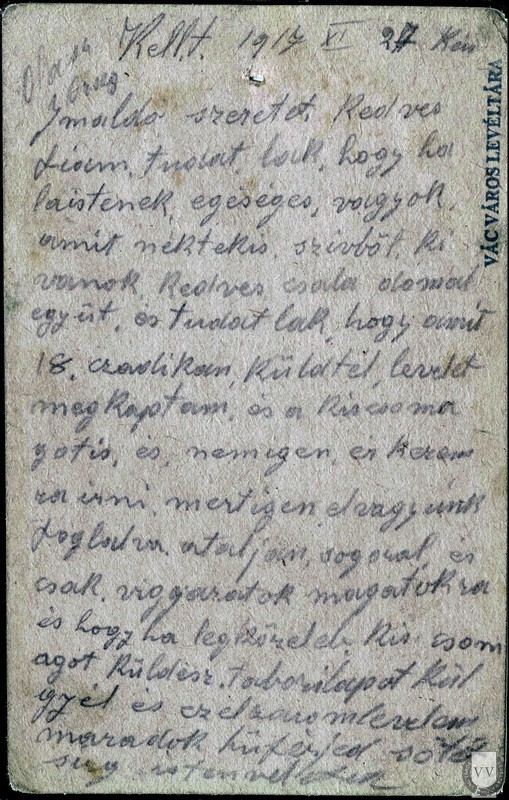 Kellt. 1917 XI 27 Kén
Imaldo szeretet Kedves
Liam, tudat lak, hogy ha
laistenek, egeséges, vagyok,
amit néktekis. szivböl. Ki
vanok, Kedves, csala domal
együt, és tudat lak, hogy amit
18. czadikan, Küldtél, levelet
megkaptam, és a Kiscsoma
gotis, és, nemigen, ér Kezem
ra irni. mertigen elvagyunk
foglalva. ataljan, sogoral, és
csak. viggazatok magatokra
és hogy ha legközeleb. Kis. csom
agot Küldesz. taborilapot Kül
gyél és ezelzarom levelem
maradok hüférjed
istenvel
VÁC VÁROS LEVÉLTÁRA
VV